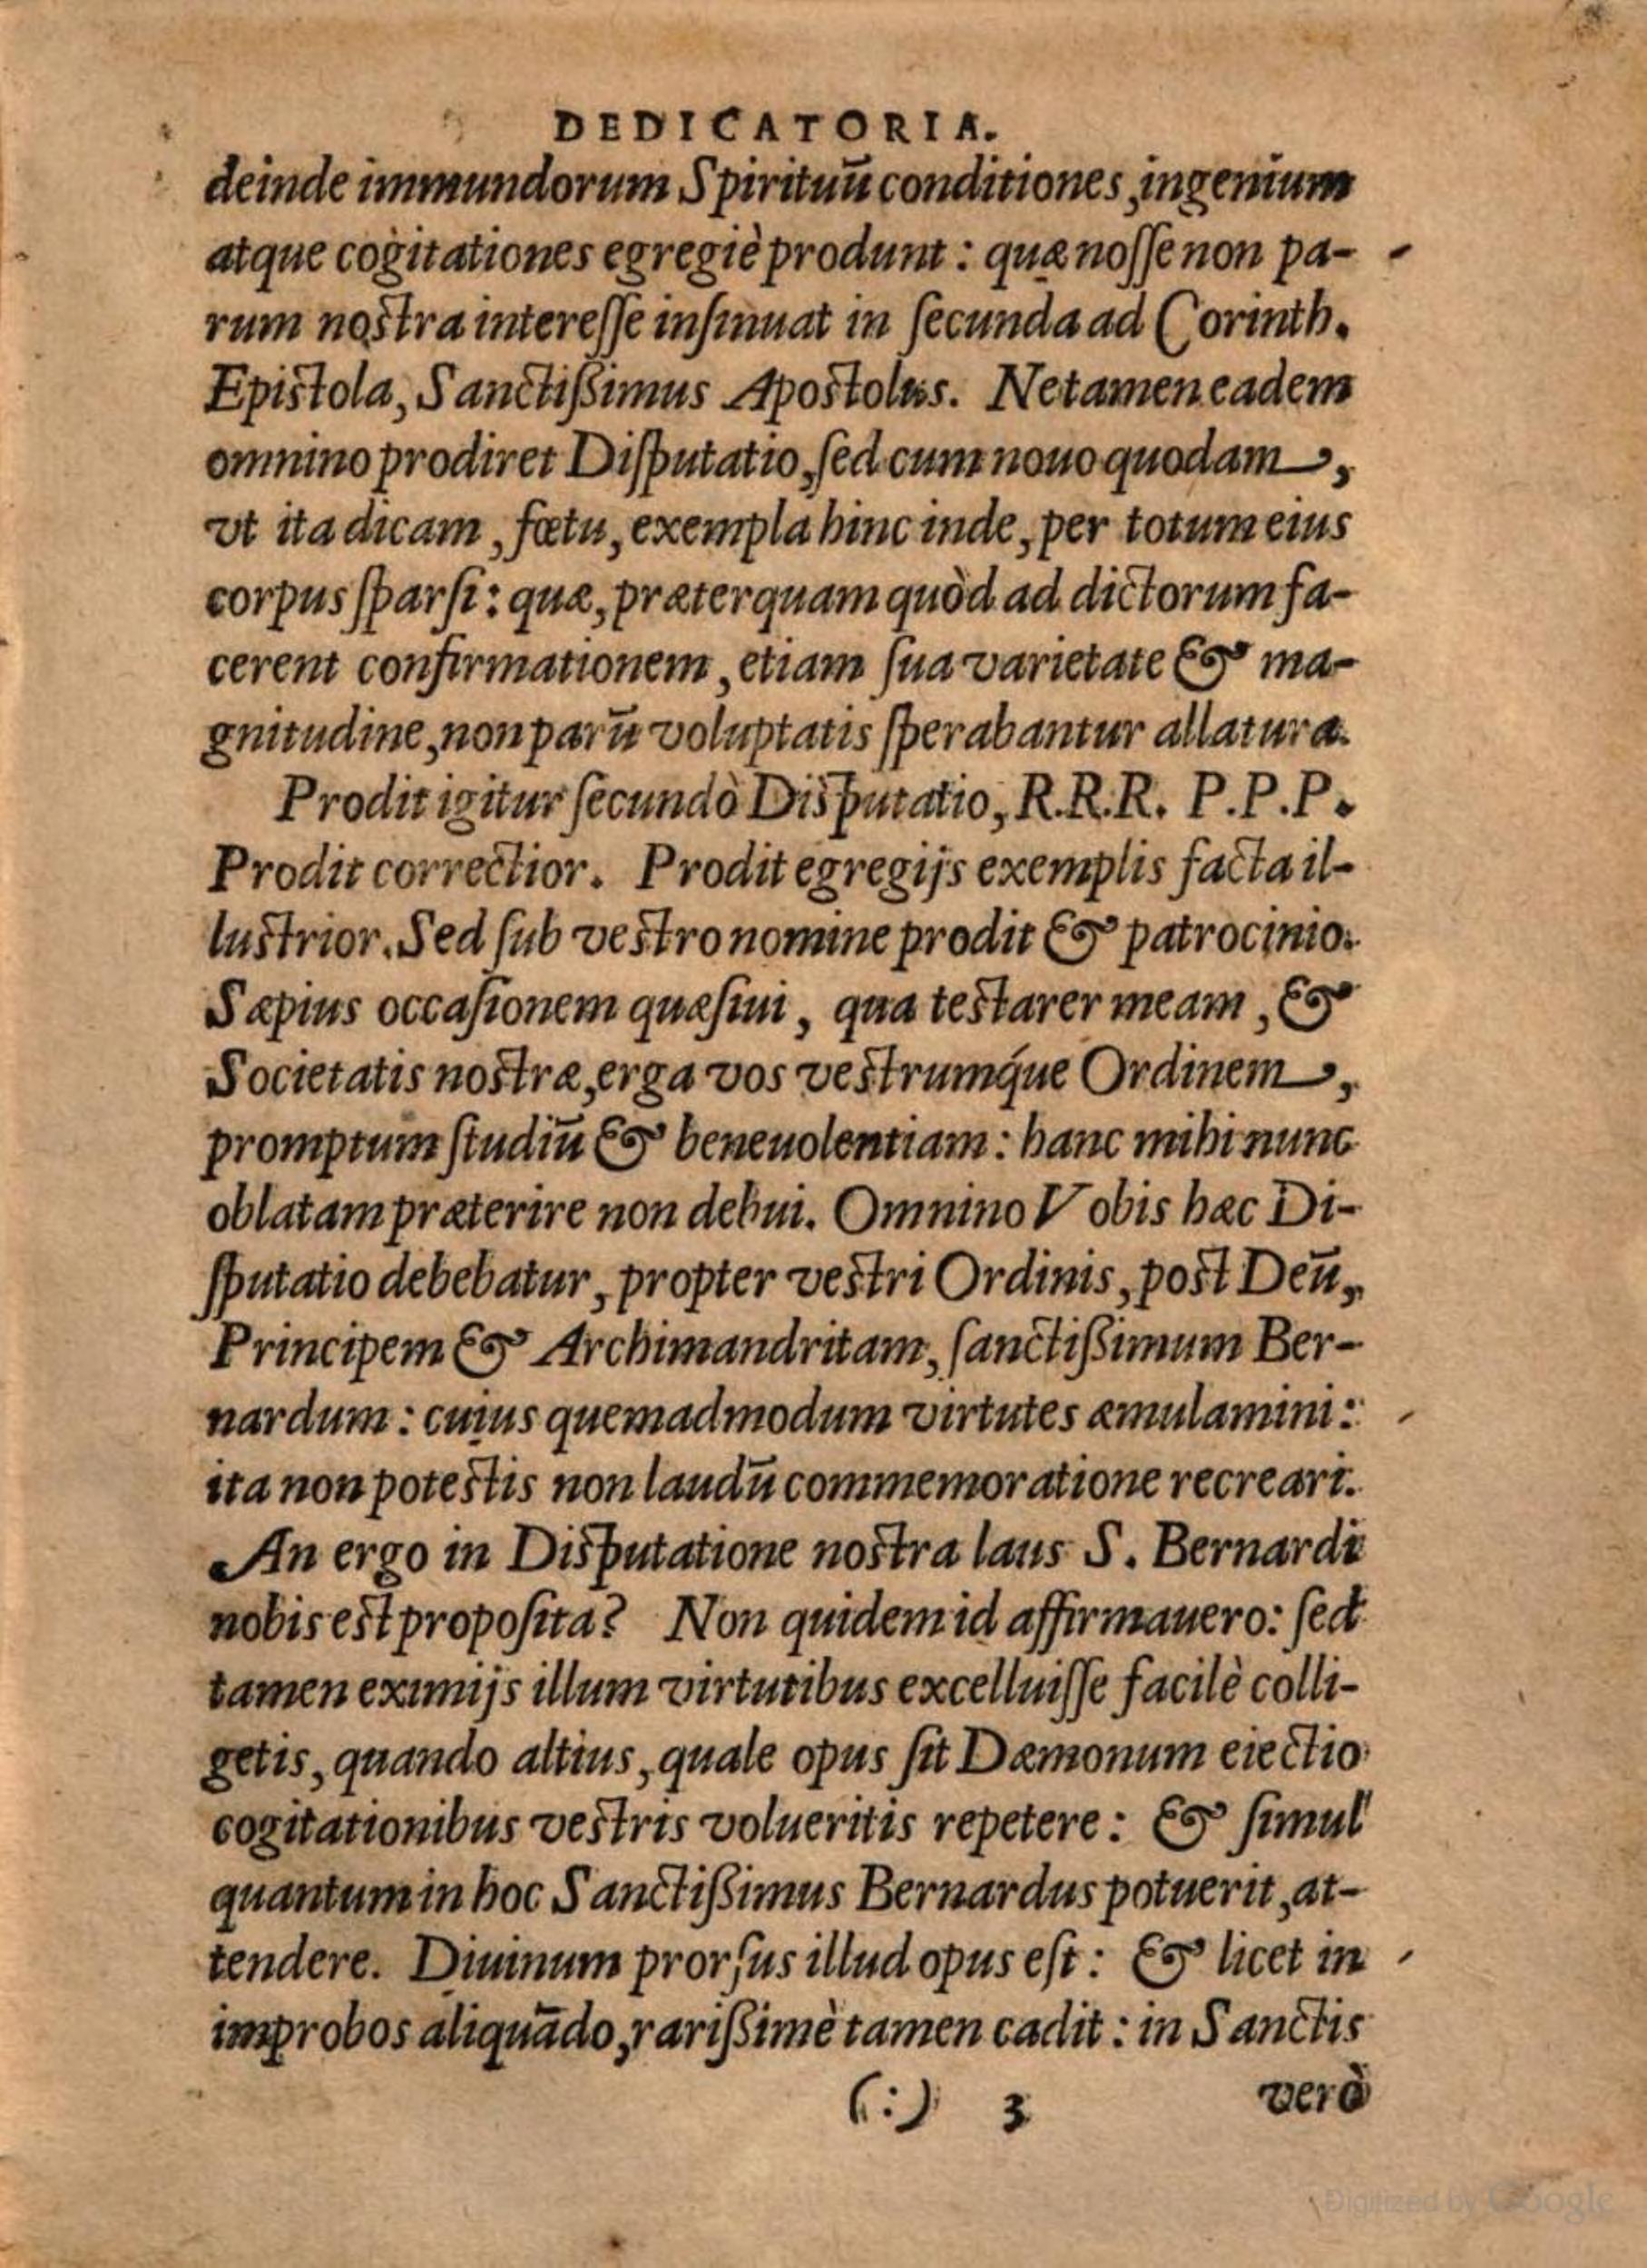 DEDICATORIA.
deinde immundorum Spirituū conditiones, ingenium
atque cogitationes egregiè produnt : quæ noſſe non pa-
rum noſtra intereſſe inſinuat in ſecunda ad Corinth.
Epiſtola, Sanctißimus Apoſtolus. Ne tamen eadem
omnino prodiret Diſputatio, ſed cum nouo quodam,
vt ita dicam, fœtu, exempla hinc inde, per totum eius
corpus ſparſi : quæ, præterquam quòd ad dictorum fa-
cerent confirmationem, etiam ſua varietate & ma-
gnitudine, non parū voluptatis ſperabantur allatura.
Prodit igitur ſecundò Diſputatio, R.R.R. P.P.P.
Prodit correctior. Prodit egregijs exemplis facta il-
luſtrior. Sed ſub veſtro nomine prodit & patrocinio.
Sæpius occaſionem quæſiui, qua teſtarer meam, &
Societatis noſtræ, erga vos veſtrumq́ue Ordinem,
promptum ſtudiū & beneuolentiam : hanc mihi nunc
oblatam præterire non debui. Omnino Vobis hæc Di-
ſputatio debebatur, propter veſtri Ordinis, poſt Deū,
Principem & Archimandritam, ſanctißimum Ber-
nardum : cuius quemadmodum virtutes æmulamini :
ita non poteſtis non laudū commemoratione recreari.
An ergo in Diſputatione noſtra laus S. Bernardi
nobis eſt propoſita? Non quidem id affirmauero: ſed
tamen eximijs illum virtutibus excelluiſſe facilè colli-
getis, quando altius, quale opus ſit Dæmonum eiectio
cogitationibus veſtris volueritis repetere : & ſimul
quantum in hoc Sanctißimus Bernardus potuerit, at-
tendere. Diuinum prorſus illud opus eſt : & licet in
improbos aliquādo, rarißimè tamen cadit : in Sanctis
(:) 3 verò
Digitized by Google